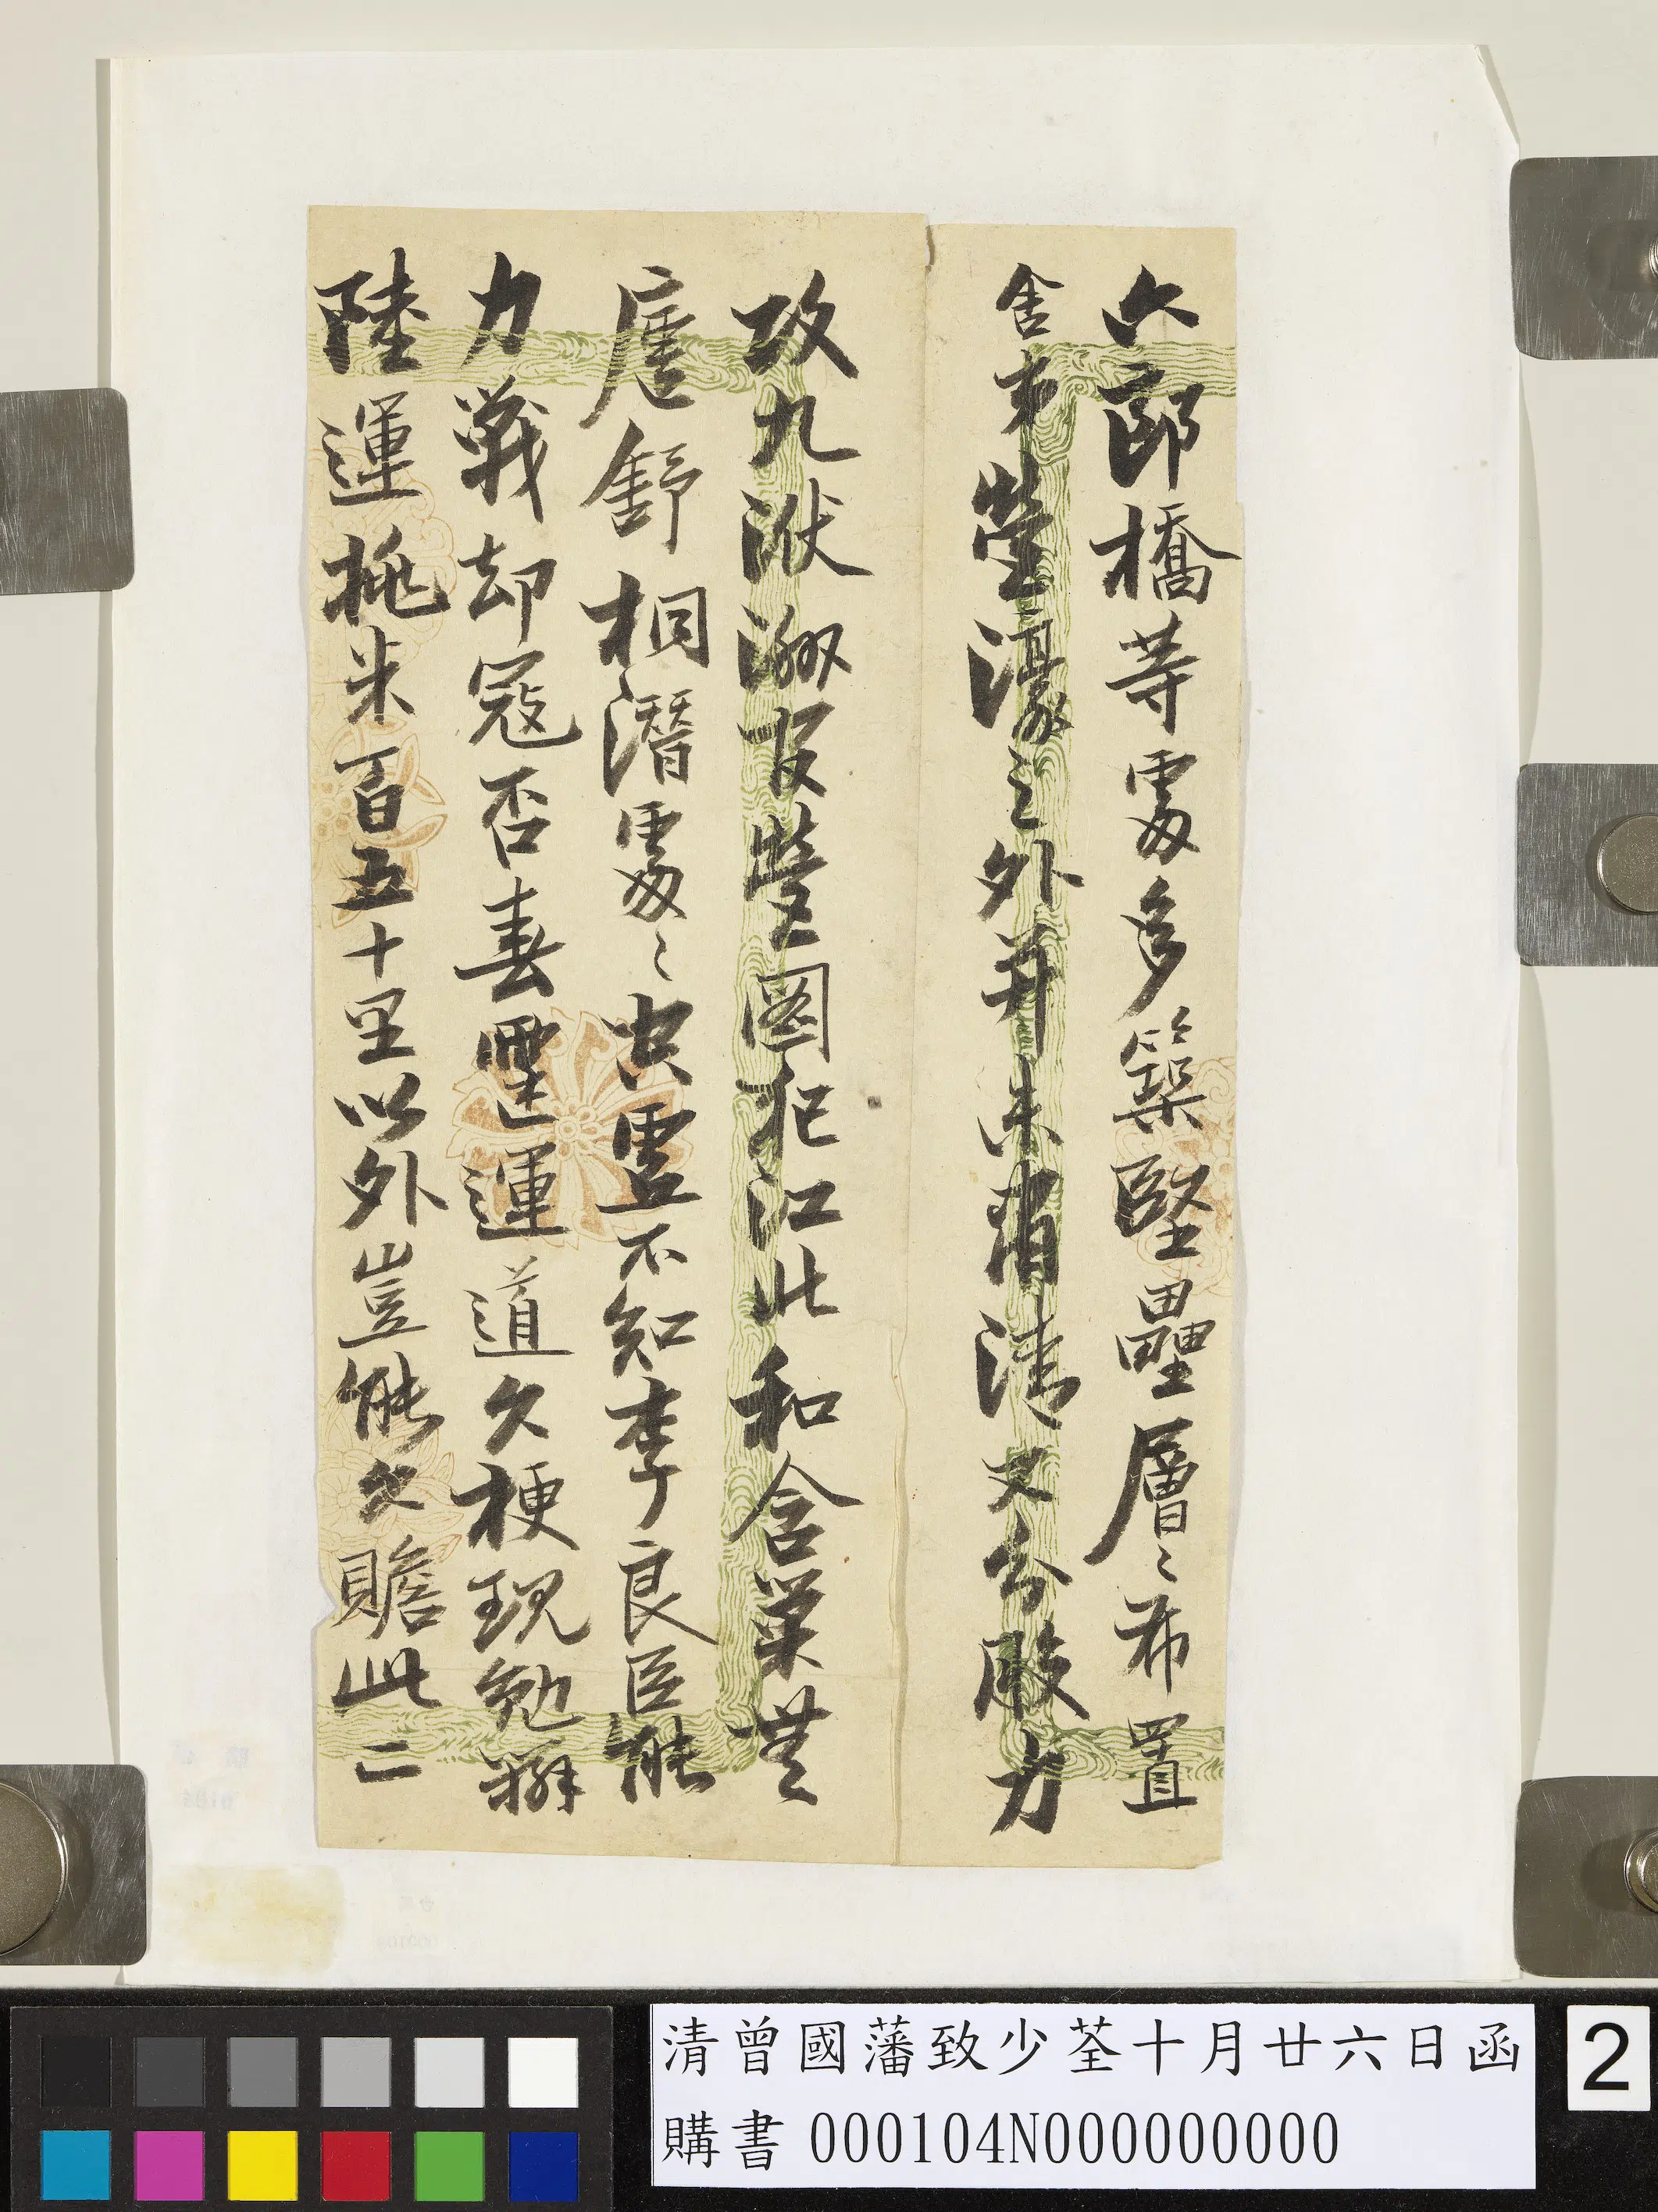 六郎橋等處多築堅壘層〻布置
舍弟營濠之外并未肅清又分股力
攻九洑洲官營圖犯江北和含巢無
廬舒桐潛處〻空虛不知李良臣能
力戰却寇否春霆運道久梗現勉辦
陸運挑米百五十里以外豈能久贍此二
清曾國藩致少荃十月廿六日函
購書 000104N000000000
2